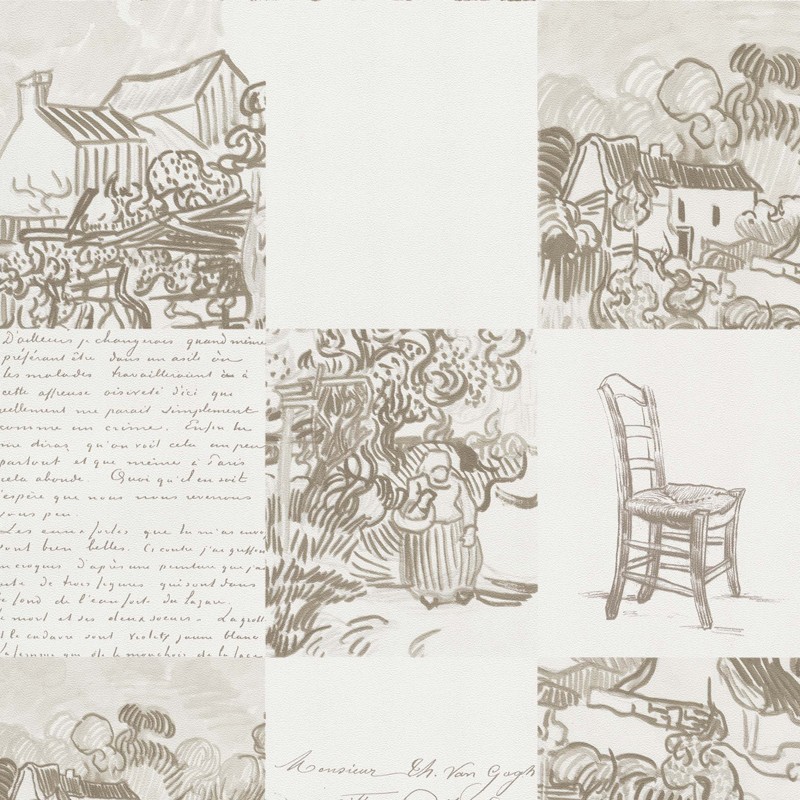 D'ailleurs je changerais quand même
préférant être dans un asile où
les malades travailleraient où à
cette affreuse oisiveté d'ici que
uellement me parait simplement
comme un crime. Enfin tu
me diras qu'on voit cela un peu
partout et que même à Paris
cela abonde. Quoi qu'il en soit
j'espère que nous nous reverrons
sous peu.
Les eaux fortes que tu m'as env
sont bien belles. Ci contre j'ai griffon
n croquis d'après une peinture que j'ai
de trois figures qui sont dans
le fond de l'eau forte du Lazare.
le mort et ses deux soeurs. La grott
t le cadavre sont violets jaune blanc
La femme qui ôte le mouchoir de la face
Monsieur Th. Van Gogh